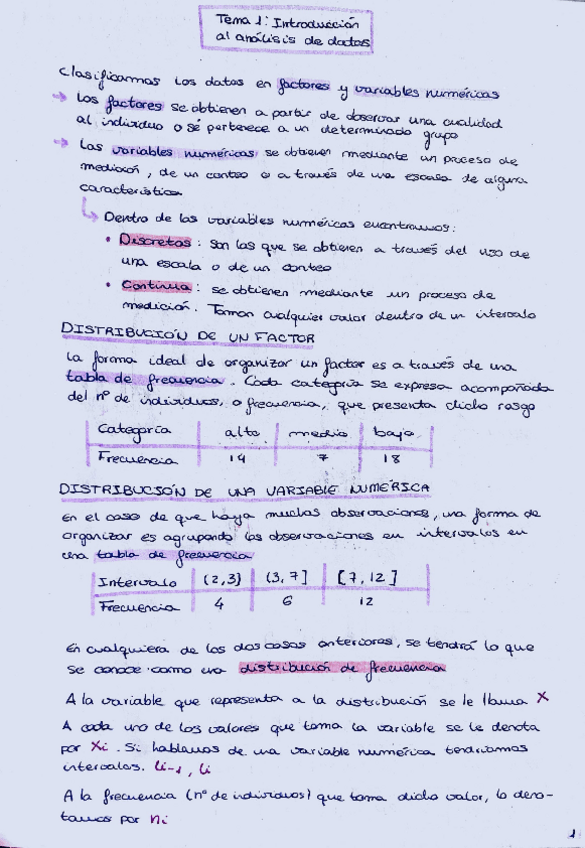 Tema 1: Introducción
al análisis de datos
Clasificamos los datos en factores y variables numéricas
→ Los factores se obtienen a partir de observar una cualidad
al individuo o si pertenece a un determinado grupo
→ Las variables numéricas se obtienen mediante un proceso de
medición, de un conteo o a través de una escala de alguna
característica
↳ Dentro de las variables numéricas encontramos:
• Discretas: son las que se obtienen a través del uso de
una escala o de un conteo
• Continua: se obtienen mediante un proceso de
medición. Toman cualquier valor dentro de un intervalo
DISTRIBUCIÓN DE UN FACTOR
La forma ideal de organizar un factor es a través de una
tabla de frecuencia. Cada categoría se expresa acompañada
del nº de individuos, o frecuencia, que presenta dicho rasgo
Categoría alta media baja
Frecuencia 14 7 18
DISTRIBUCIÓN DE UNA VARIABLE NUMÉRICA
En el caso de que haya muchas observaciones, una forma de
organizar es agrupando las observaciones en intervalos en
una tabla de frecuencia
Intervalo (2,3] (3,7] [7,12]
Frecuencia 4 6 12
En cualquiera de los dos casos anteriores, se tendrá lo que
se conoce como una distribución de frecuencia
A la variable que representa a la distribución se le llama X
A cada uno de los valores que toma la variable se le denota
por xi. Si hablamos de una variable numérica tendríamos
intervalos. Li-1, Li
A la frecuencia (nº de individuos) que toma dicho valor, lo deno-
tamos por ni
1